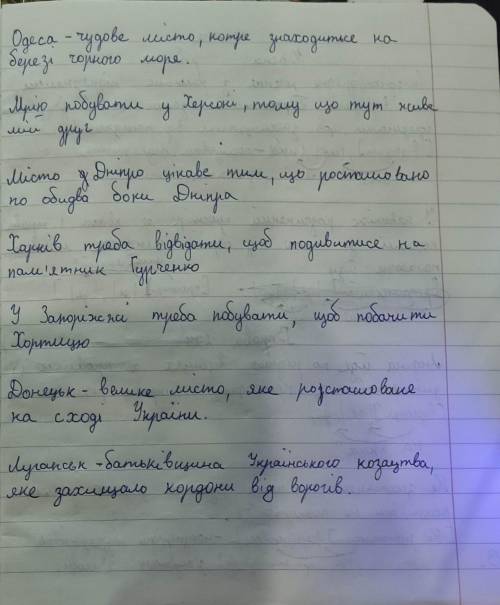 Одеса - чудове місто, котре знаходитьсе на
березі чорного море.
Мрію побувати у Херсоні, тому що тут живе
мій друг
Місто Дніпро цікаве тим, що росташовано
по обидва боки Дніпра
Харків треба відвідати, щоб подивитисе на
пам'ятник Гурченко
У Запоріжжі треба побувати, щоб побачити
Хортицю
Донецьк - велике місто, яке розташоване
на сході України.
Луганськ - батьківщина Українського козацтва,
яке захищало кордони від ворогів.